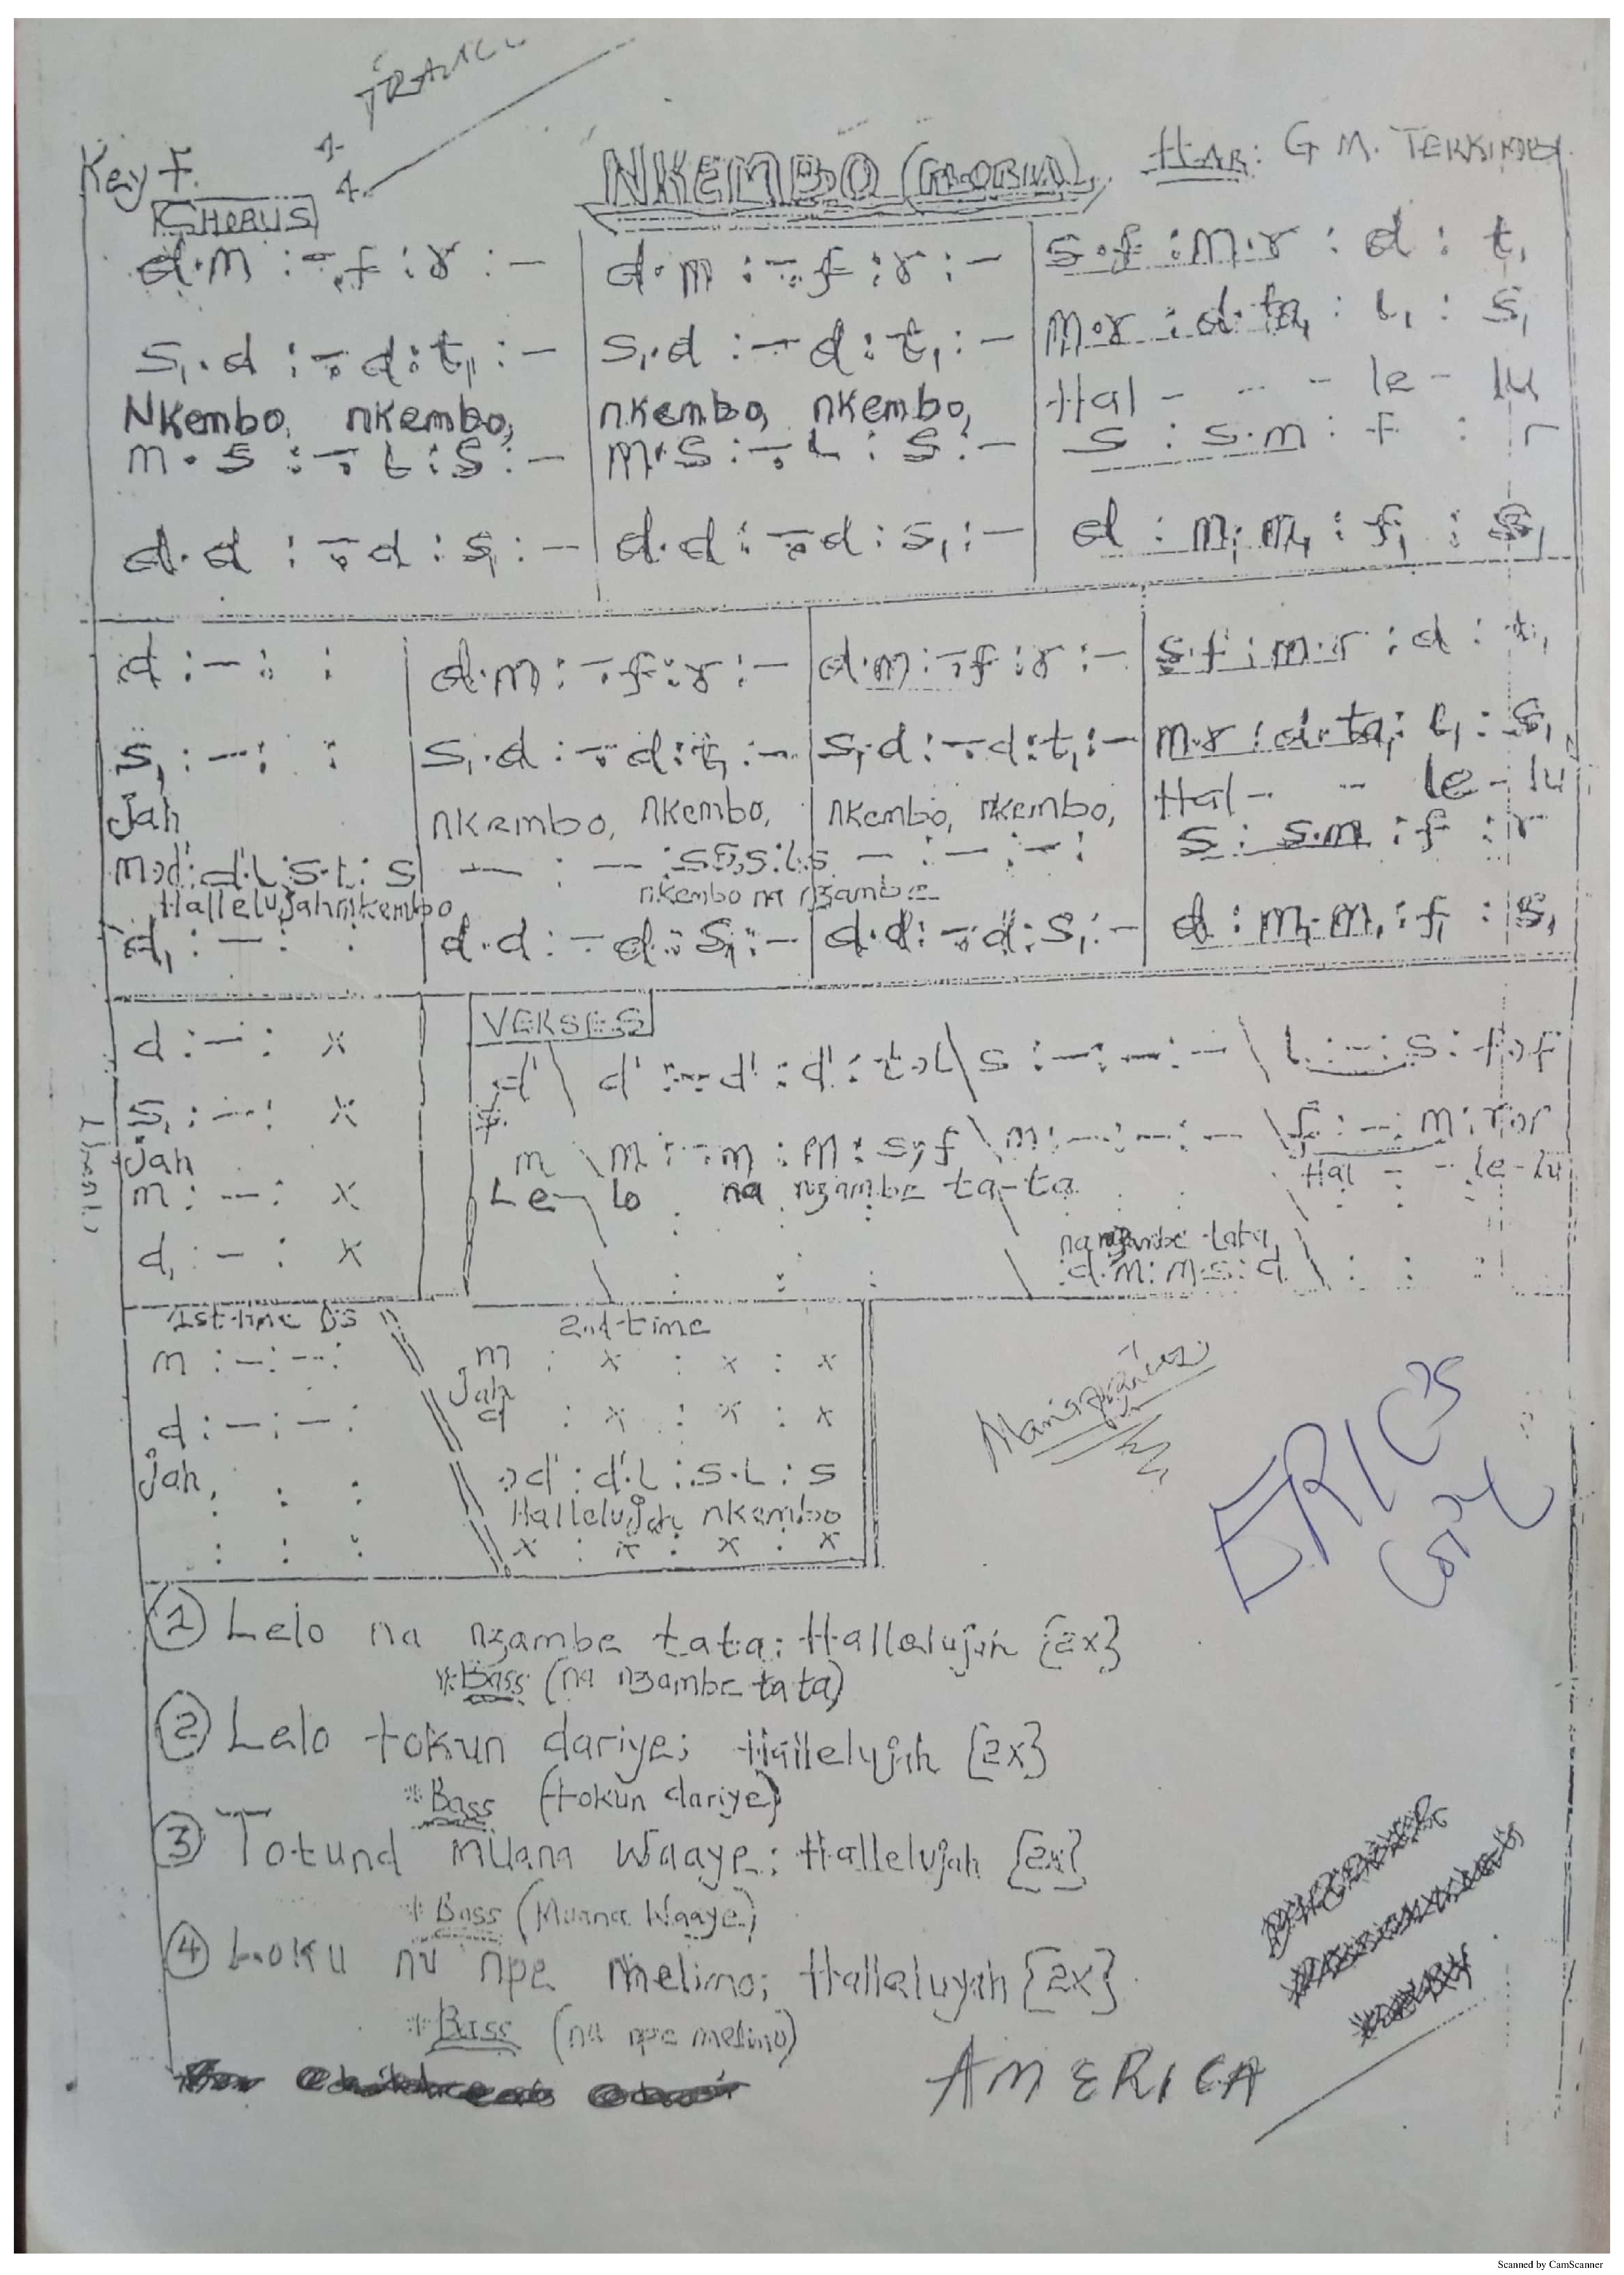 Key F. 4 4 NKEMBO (GLORIA) HAR: G M.
CHORUS
d.m : -.f : r : - | d.m : -.f : r : - | s.f : m.r : d : t,
s,.d : -.d : t, : - | s,.d : -.d : t, : - | m.r : d.ta, : l, : s,
Nkembo, nkembo, nkembo, nkembo, Hal - - - le - lu
m.s : -.l : s : - | m.s : -.l : s : - | s : s.m : f : r
d.d : -.d : s, : - | d.d : -.d : s, : - | d : m,.m, : f, : s,
d : - : : | d.m : -.f : r : - | d.m : -.f : r : - | s.f : m.r : d : t,
s, : - : : | s,.d : -.d : t, : - | s,.d : -.d : t, : - | m.r : d.ta, : l, : s,
Jah nkembo, nkembo, nkembo, nkembo, Hal - - - le - lu
s : s.m : f : r
Hallelujah nkembo nkembo na nzambe
d, : - : : | d.d : -.d : s, : - | d.d : -.d : s, : - | d : m,.m, : f, : s,
VERSES
d : - : x
d' | d' : -.d' : d' : t.l | s : - : - : - | l : - : s : f.f
s, : - : x
m | m : -.m : m : s.f | m : - : - : - | f : - : m : r.r
Jah
Le - lo na nzambe ta-ta Hal - - le-lu
m : - : x
na nzambe tata
d, : - : x
d.m : m.s : d
1st time DS 2nd time
m : - : - : m : x : x : x
Jah
d : - : - : d : x : x : x
Jah, .d' : d'.l : s.l : s
Hallelujah nkembo
: : : x : x : x : x
ERIC'S
COPY
1 Lelo na nzambe tata: Hallelujah {2x}
*Bass (na nzambe tata)
2 Lelo tokun dariye; Hallelujah {2x}
*Bass (tokun dariye)
3 Totund muana Waaye; Hallelujah {2x}
*Bass (Muana Waaye)
4 Loku na npe melimo; Halleluyah {2x}
*Bass (na npe melimo)
AMERICA
Scanned by CamScanner